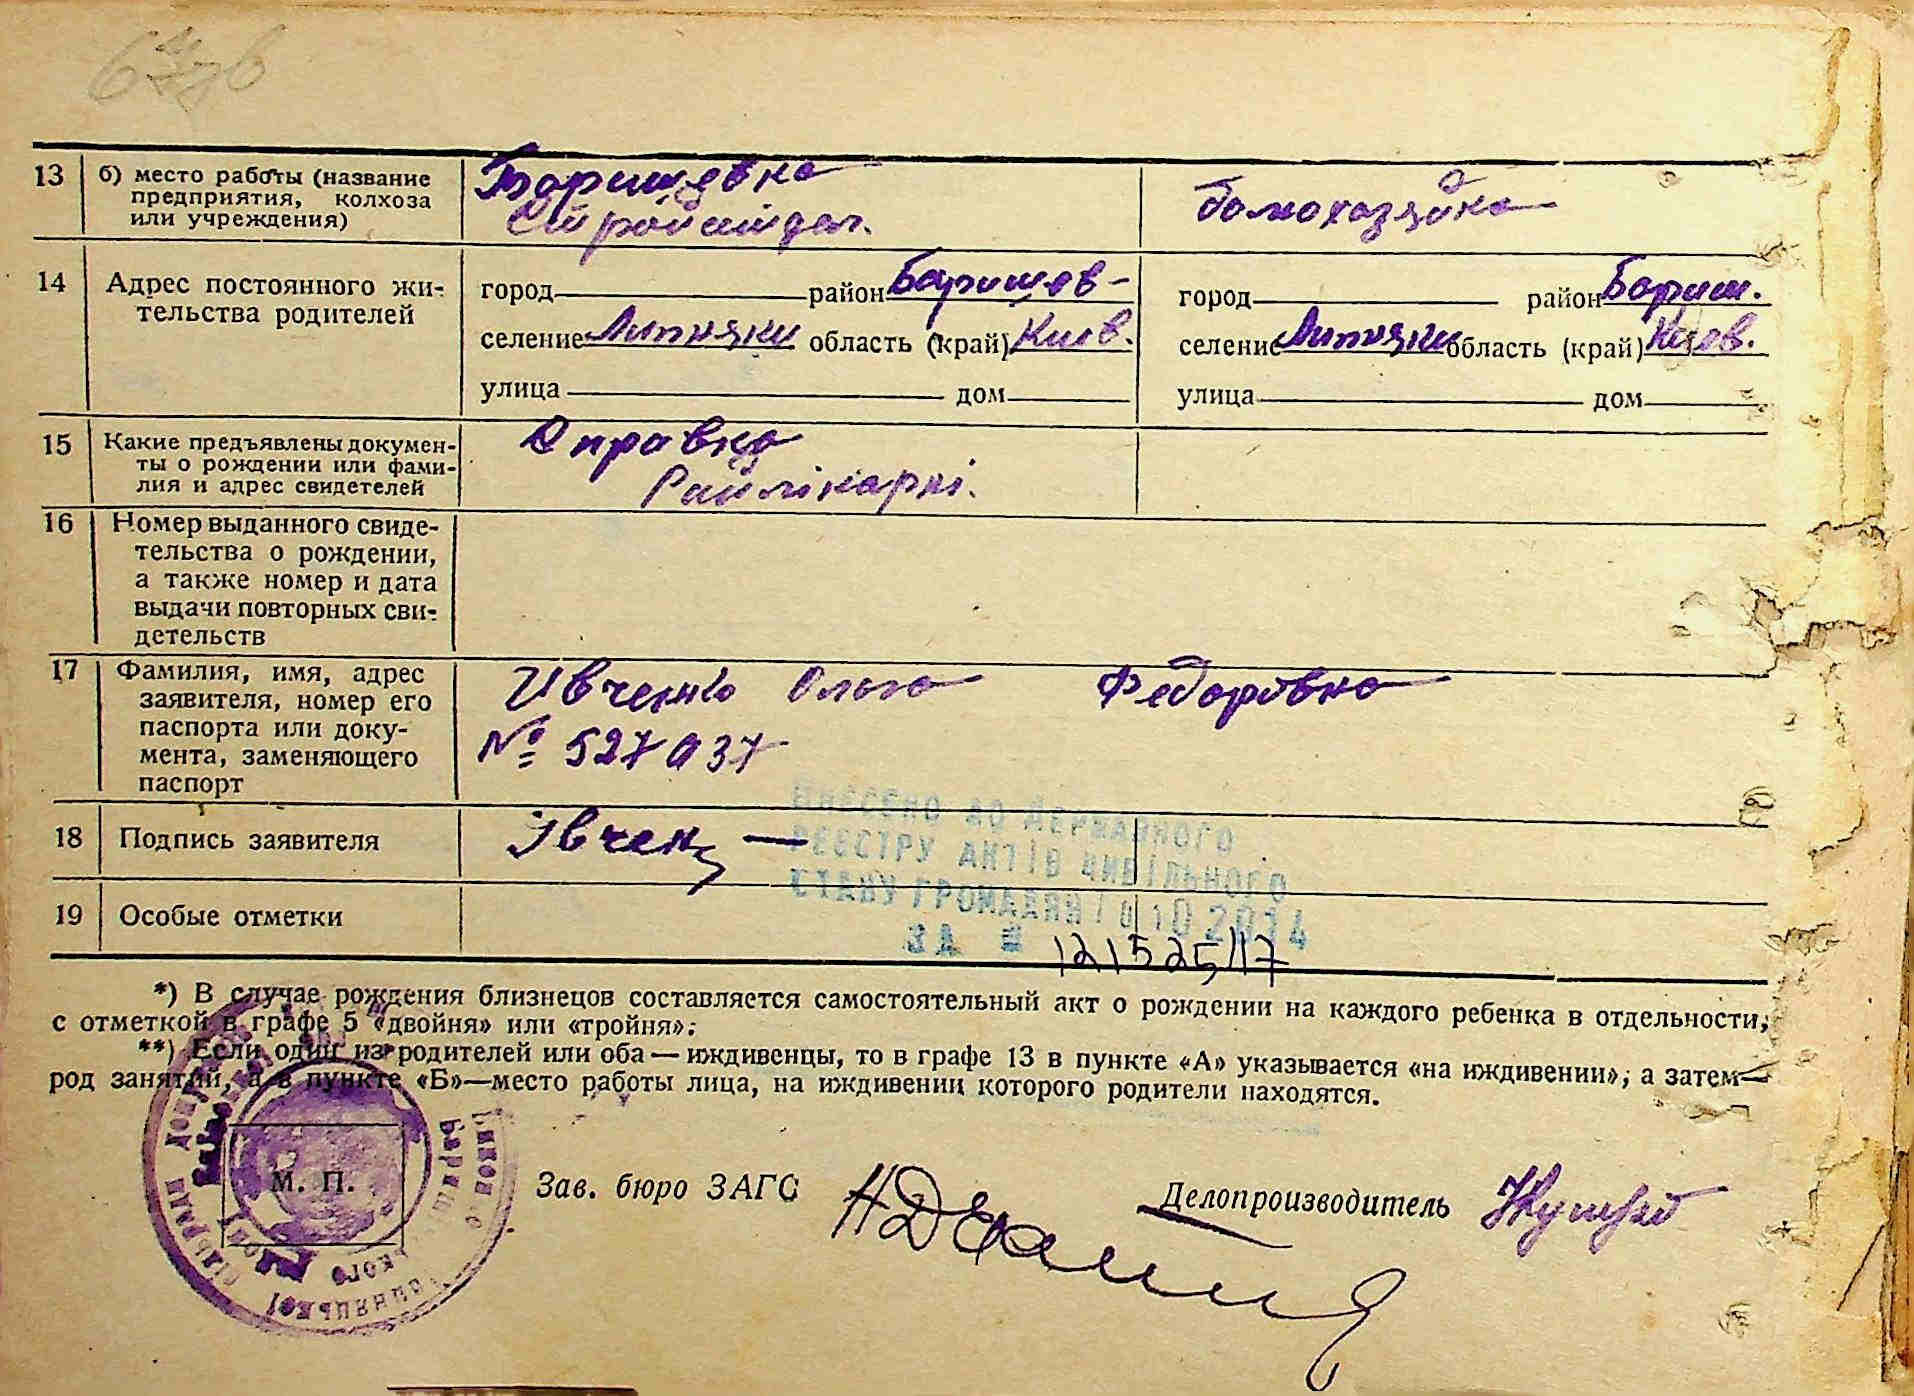 13 б) место работы (название
предприятия, колхоза
или учреждения)
домохозяйка
14 Адрес постоянного жи-
тельства родителей
город район Баришев-
селение Липняки область (край) Киев.
улица дом
город район Бариш.
селение Липняки область (край) Киев.
улица дом
15 Какие предъявлены докумен-
ты о рождении или фами-
лия и адрес свидетелей
Справка
Райлікарні.
16 Номер выданного свиде-
тельства о рождении,
а также номер и дата
выдачи повторных сви-
детельств
17 Фамилия, имя, адрес
заявителя, номер его
паспорта или доку-
мента, заменяющего
паспорт
Ивченко Ольга Федоровна
№ 527037
18 Подпись заявителя
Івчен
19 Особые отметки
ВНЕСЕНО ДО ДЕРЖАВНОГО
РЕЄСТРУ АКТІВ ЦИВІЛЬНОГО
СТАНУ ГРОМАДЯН 10 2014
ЗА №
*) В случае рождения близнецов составляется самостоятельный акт о рождении на каждого ребенка в отдельности,
с отметкой в графе 5 «двойня» или «тройня».
**) Если один из родителей или оба — иждивенцы, то в графе 13 в пункте «А» указывается «на иждивении», а затем—
род занятий, а в пункте «Б»—место работы лица, на иждивении которого родители находятся.
М. П.
Зав. бюро ЗАГС
Делопроизводитель